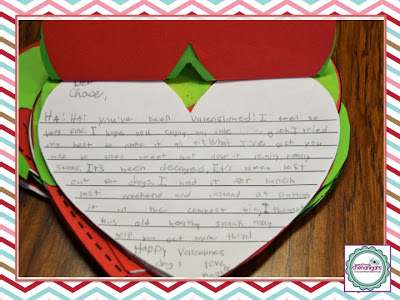 Dear
Chace,
HA! HA! you've been Valenslimed! I smel so
very fine, I hope you enjoy my vile I tried
my best to make it all What I've got you
use to smell sweet but now it really, really
stinks. It's been decayed, It's been left
out for days, I had it for lunch
last weekend and instead of putting
it in the compost bin, I thought
this old healthy snack may
help you get more thin!
Happy Valentines
day! love,
shenanigans